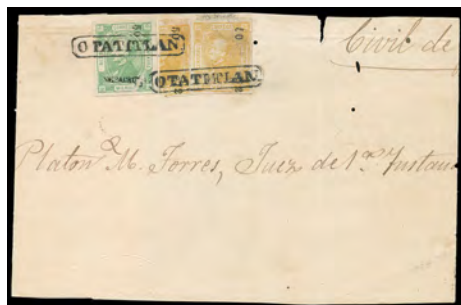 OPATITLAN
OTATITLAN
Civil de
Platon M. Torres, Juez de 1ª Instan